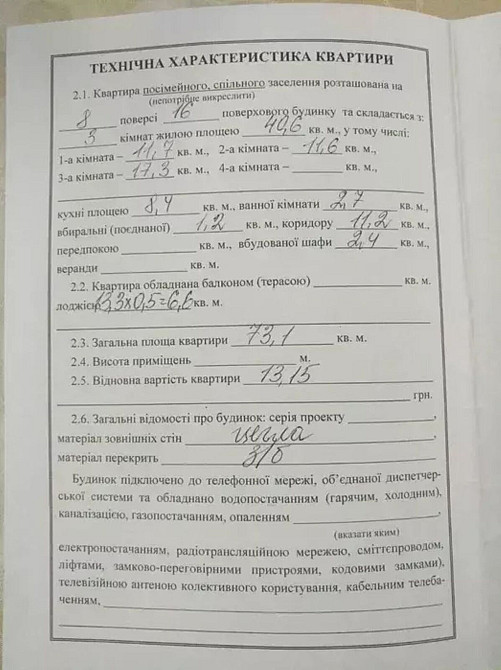 ТЕХНІЧНА ХАРАКТЕРИСТИКА КВАРТИРИ
2.1. Квартира посімейного, спільного заселення розташована на
(непотрібне викреслити)
8 поверсі 16 поверхового будинку та складається з:
3 кімнат жилою площею 40,6 кв. м., у тому числі:
1-а кімната – 11,7 кв. м., 2-а кімната – 11,6 кв. м.,
3-а кімната – 17,3 кв. м., 4-а кімната – кв. м.,
кухні площею 8,4 кв. м., ванної кімнати 2,7 кв. м.,
вбиральні (поєднаної) 1,2 кв. м., коридору 11,2 кв. м.,
передпокою кв. м., вбудованої шафи 2,4 кв. м.,
веранди кв. м.
2.2. Квартира обладнана балконом (терасою) кв. м.
лоджією 13,3х0,5=6,6 кв. м.
2.3. Загальна площа квартири 73,1 кв. м.
2.4. Висота приміщень м.
2.5. Відновна вартість квартири 13,15
грн.
2.6. Загальні відомості про будинок: серія проекту ,
матеріал зовнішніх стін цегла ,
матеріал перекрить з/б
Будинок підключено до телефонної мережі, об’єднаної диспетчер-
ської системи та обладнано водопостачанням (гарячим, холодним),
каналізацією, газопостачанням, опаленням ,
(вказати яким)
електропостачанням, радіотрансляційною мережею, сміттєпроводом,
ліфтами, замково-переговірними пристроями, кодовими замками),
телевізійною антеною колективного користування, кабельним телеба-
ченням,